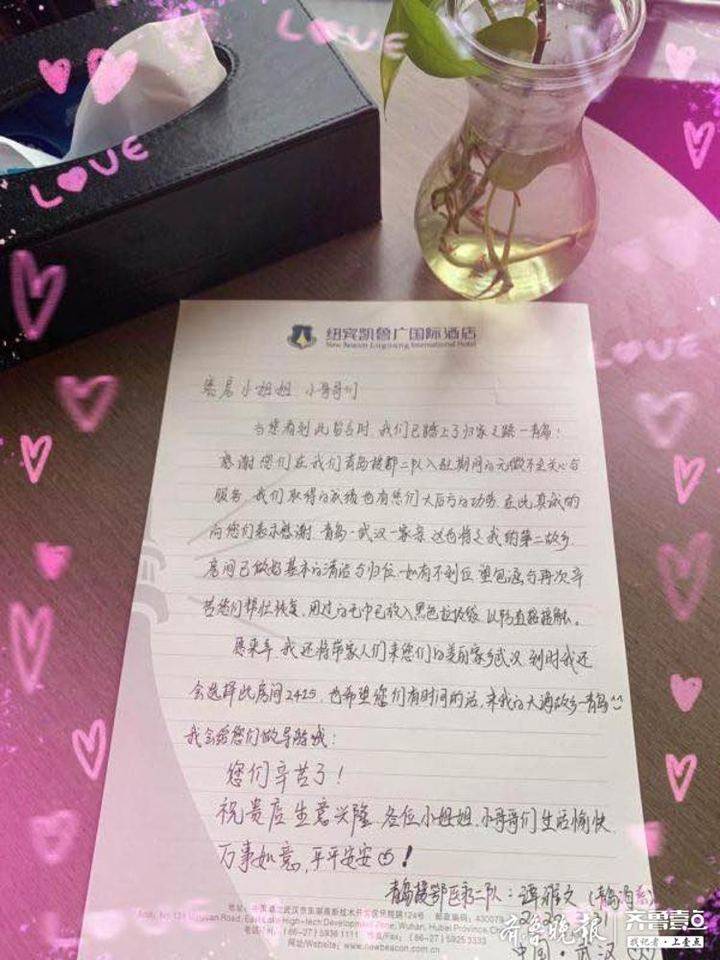 LOVE
LOVE
纽宾凯鲁广国际酒店
New Beacon Luguang International Hotel
客房小姐姐 小哥哥们
当您看到此留言时,我们已踏上了归家之路-青岛!
感谢您们在我们青岛援鄂二队入驻期间的无微不至关心与
服务,我们取得的成绩也有您们大后方的功劳,在此真诚的
向您们表示感谢,青岛-武汉一家亲,这也将是我的第二故乡
房间已做好基本的清洁与归位,如有不到位,望包涵与再次辛
苦您们帮忙恢复,用过的毛巾已放入黑色垃圾袋,以防直接接触。
愿来年,我还将带家人们来您们的美丽家乡武汉,到时我还
会选择此房间2425,也希望您们有时间的话,来我的大海故乡-青岛^^
我会给您们做导游哦!
您们辛苦了!
祝贵店生意兴隆 各位小姐姐,小哥哥们生活愉快
万事如意,平平安安!
青岛援鄂医疗二队:谭雅文(青岛
中国·武汉
邮政编码:430079
Add: No.124 Guanshan Road, East Lake High-tech Development Zone, Wuhan, Hubei Province
电话/Tel: (86-27) 5936 1111 传真/Fax: (86-27) 5925 3333
网址/Website: www.newbeacon.com
LOVE
LOVE
齐鲁晚报
齐鲁壹点
找记者·上壹点